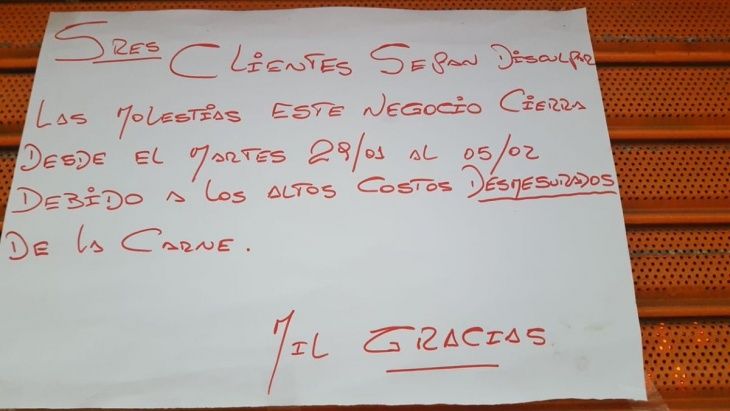 SRES CLIENTES SEPAN DISCULPAR
LAS MOLESTIAS ESTE NEGOCIO CIERRA
DESDE EL MARTES 29/01 AL 05/02
DEBIDO A LOS ALTOS COSTOS DESMESURADOS
DE LA CARNE.
MIL GRACIAS